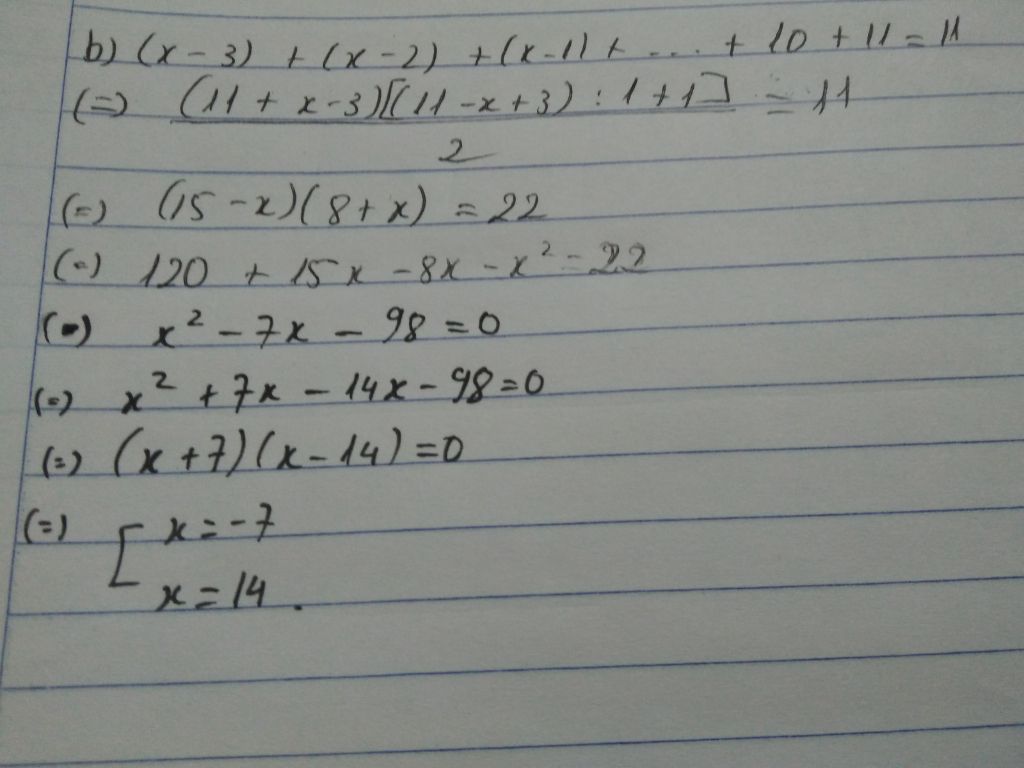 b) (x - 3) + (x - 2) + (x - 1) + ... + 10 + 11 = 11
(=) (11 + x - 3)[(11 - x + 3) : 1 + 1] / 2 = 11
(=) (15 - x)(8 + x) = 22
(=) 120 + 15x - 8x - x² = 22
(=) x² - 7x - 98 = 0
(=) x² + 7x - 14x - 98 = 0
(=) (x + 7)(x - 14) = 0
(=) [ x = -7
x = 14.